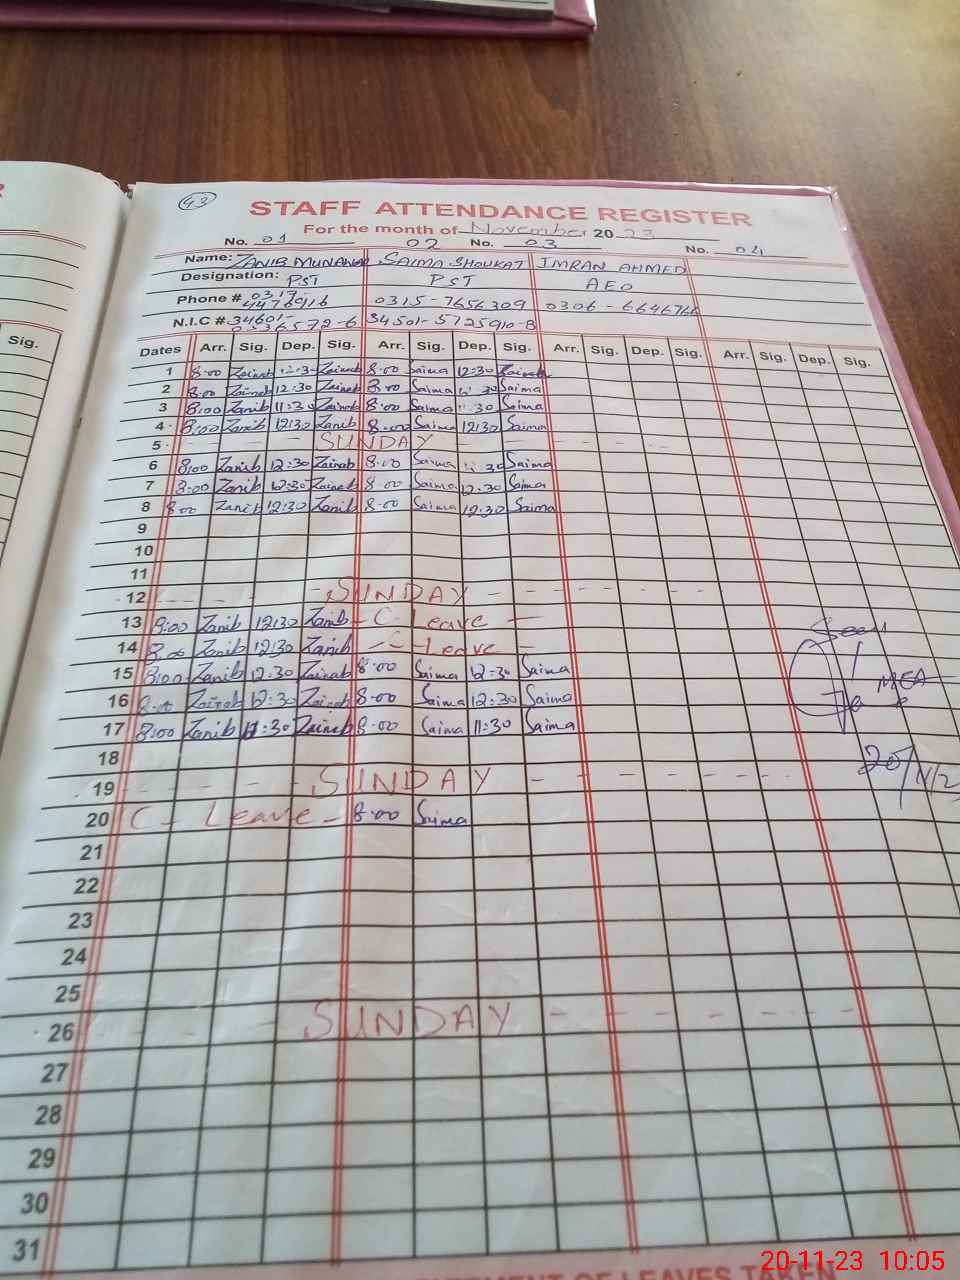 R
Sig.
43
STAFF ATTENDANCE REGISTER
For the month of November 2023
No. 01 02 No. 03 No. 04
Name: ZANIB MUNAWAR SAIMA SHOUKAT IMRAN AHMED
Designation: PST PST AEO
Phone # 0317-4476916 0315-7656309 0306-6646766
N.I.C # 34601-0536572-6 34501-5725910-8
Dates Arr. Sig. Dep. Sig. Arr. Sig. Dep. Sig. Arr. Sig. Dep. Sig. Arr. Sig. Dep. Sig.
1 8:00 Zainab 12:30 Zainab 8:00 Saima 12:30 Zainab
2 8:00 Zainab 12:30 Zainab 8:00 Saima 12:30 Saima
3 8:00 Zanib 11:30 Zainab 8:00 Saima 11:30 Saima
4 8:00 Zanib 12:30 Zanib 8:00 Saima 12:30 Saima
5 SUNDAY
6 8:00 Zanib 12:30 Zainab 8:00 Saima 12:30 Saima
7 8:00 Zanib 12:30 Zainab 8:00 Saima 12:30 Saima
8 8:00 Zanib 12:30 Zanib 8:00 Saima 12:30 Saima
9
10
11
12 SUNDAY
13 8:00 Zanib 12:30 Zanib - C - Leave -
14 8:00 Zanib 12:30 Zanib - C - Leave -
15 8:00 Zanib 12:30 Zainab 8:00 Saima 12:30 Saima
16 8:00 Zainab 12:30 Zainab 8:00 Saima 12:30 Saima
17 8:00 Zanib 11:30 Zainab 8:00 Saima 11:30 Saima
18
19 SUNDAY
20 C - Leave - 8:00 Saima
21
22
23
24
25
26 SUNDAY
27
28
29
30
31
Seen
MEA
20/11/23
OF LEAVES TAKEN
20-11-23 10:05